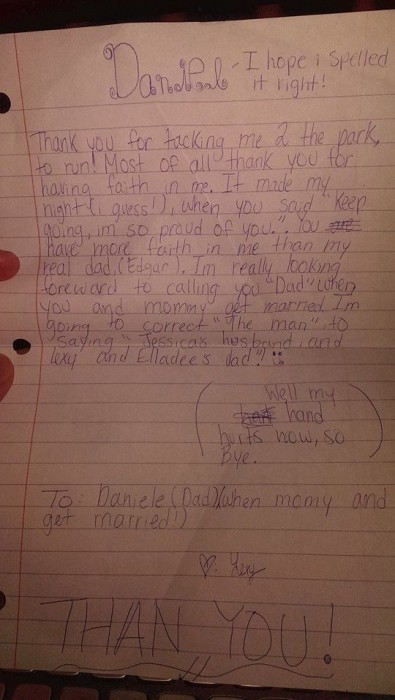 - I hope i spelled
it right!
Thank you for tacking me 2 the park,
to run! Most of all thank you for
having faith in me. It made my
night (i guess!), when you said "Keep
going, im so proud of you.". You are
have more faith in me than my
real dad. (Edgar). I'm really looking
foreward to calling you "Dad" when
you and mommy get married I'm
going to correct "The man", to
saying "Jessica's husband, and
lexy and Elladee's dad"!
(Well my
hand
hurts now, so
Bye.)
To: Daniele (Dad)(when momy and
get married!)
♡: Lexy
THAN YOU!